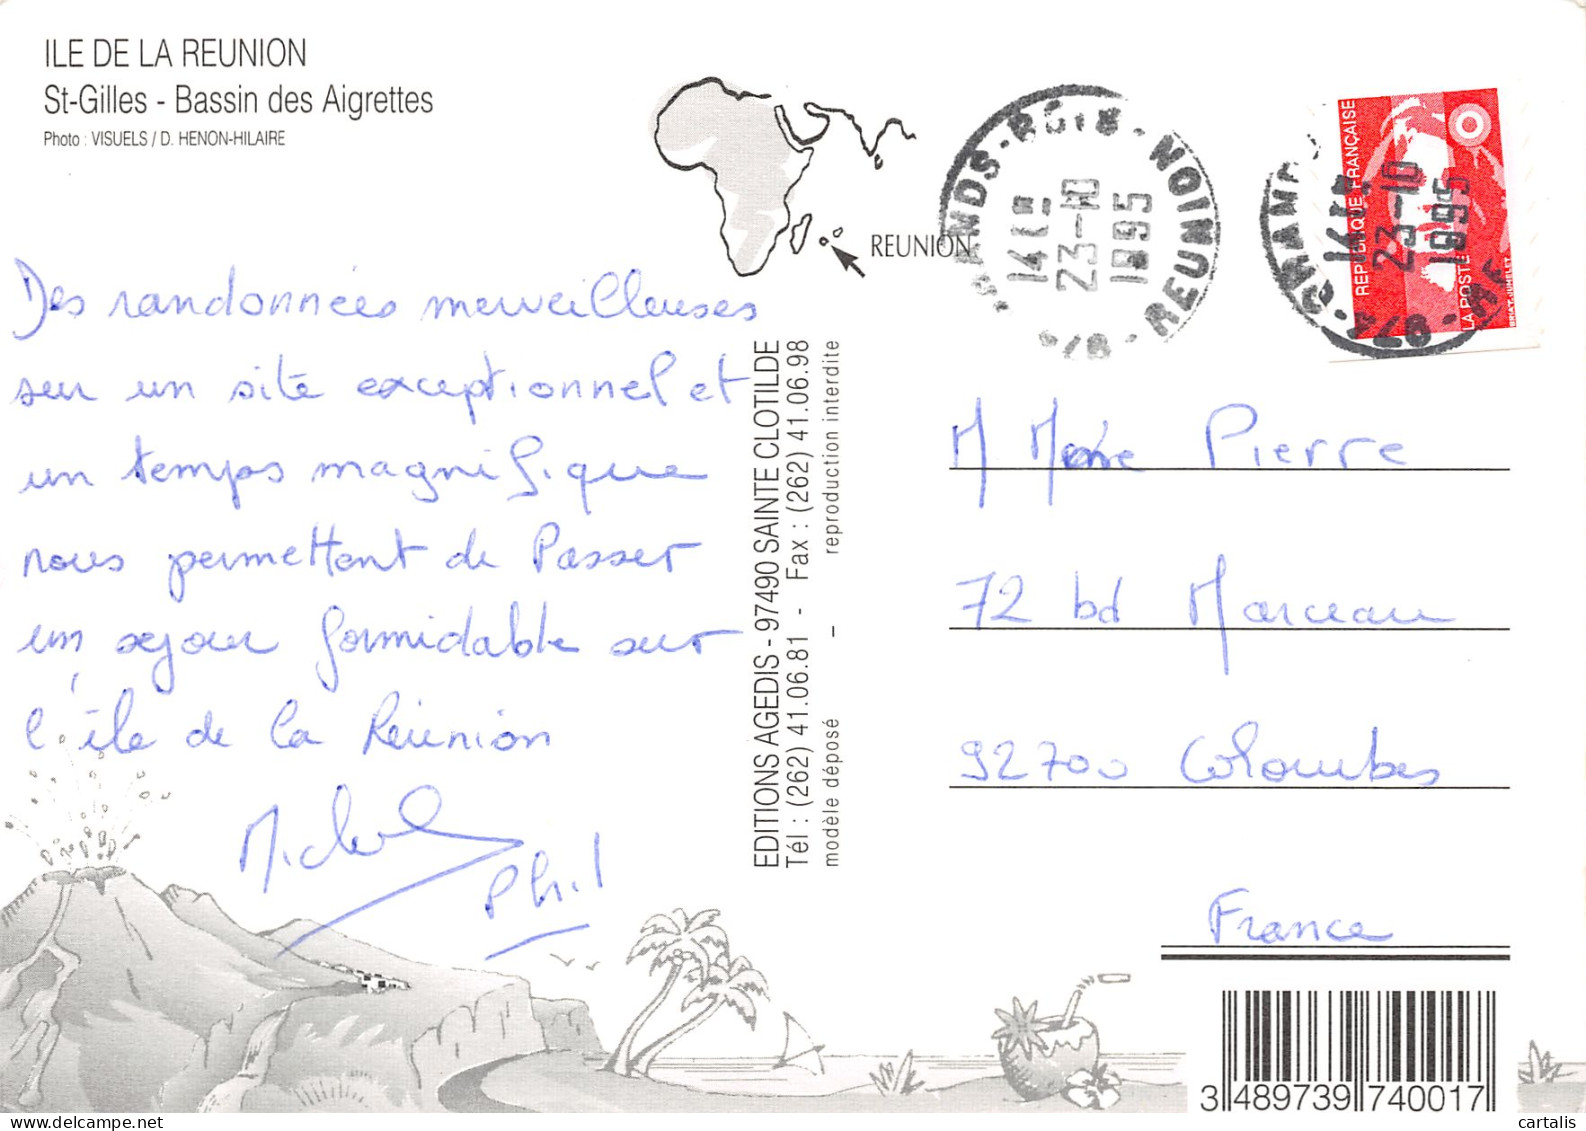 ILE DE LA REUNION
St-Gilles - Bassin des Aigrettes
Photo : VISUELS / D. HENON-HILAIRE
REUNION
GRANDS-BOIS - REUNION
23-10
1995
974
23-10
1995
REPUBLIQUE FRANÇAISE
LA POSTE
BRIAT-JUMELET
Des randonnées merveilleuses
sur un site exceptionnel et
un temps magnifique
nous permettent de Passer
un séjour formidable sur
l'île de la Réunion
Phil
EDITIONS AGEDIS - 97490 SAINTE CLOTILDE
Tél : (262) 41.06.81 - Fax : (262) 41.06.98
modèle déposé – reproduction interdite
M Pierre
72 bd Marceau
92700 Colombes
France
3 489739 740017
cartalis